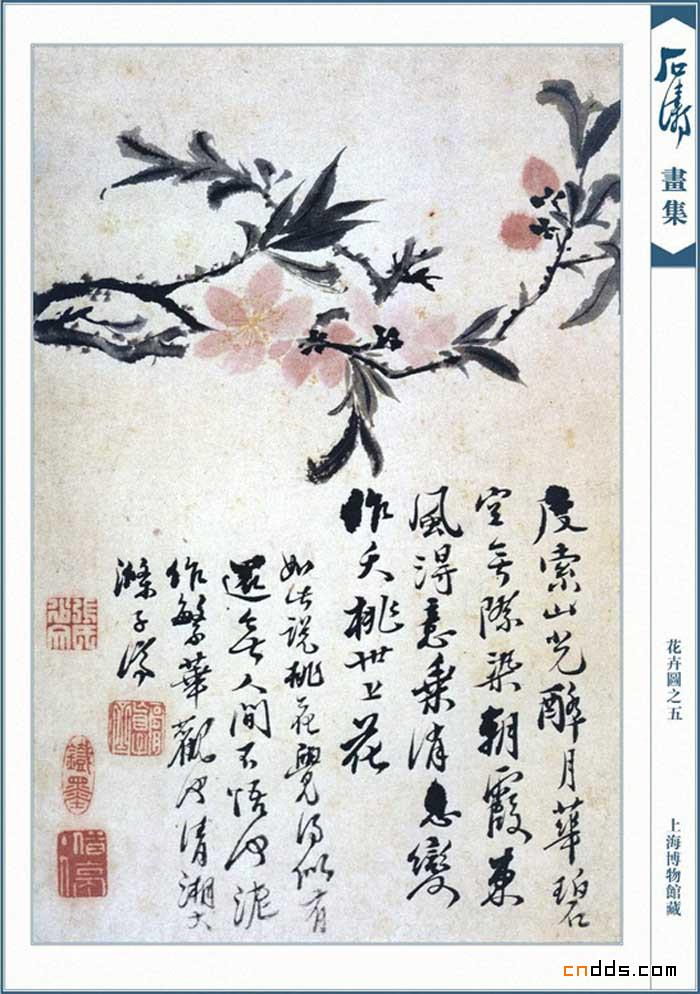 石濤
畫集
花卉圖之五
上海博物館藏
度索山光醉月華碧
空無際染朝霞東
風得意乘消息變
作夭桃世上花
如此說桃花覺得似有
還無人間不悟也泥
作繁華觀也清湘大
滌子濟
鐵墨
cndds.com